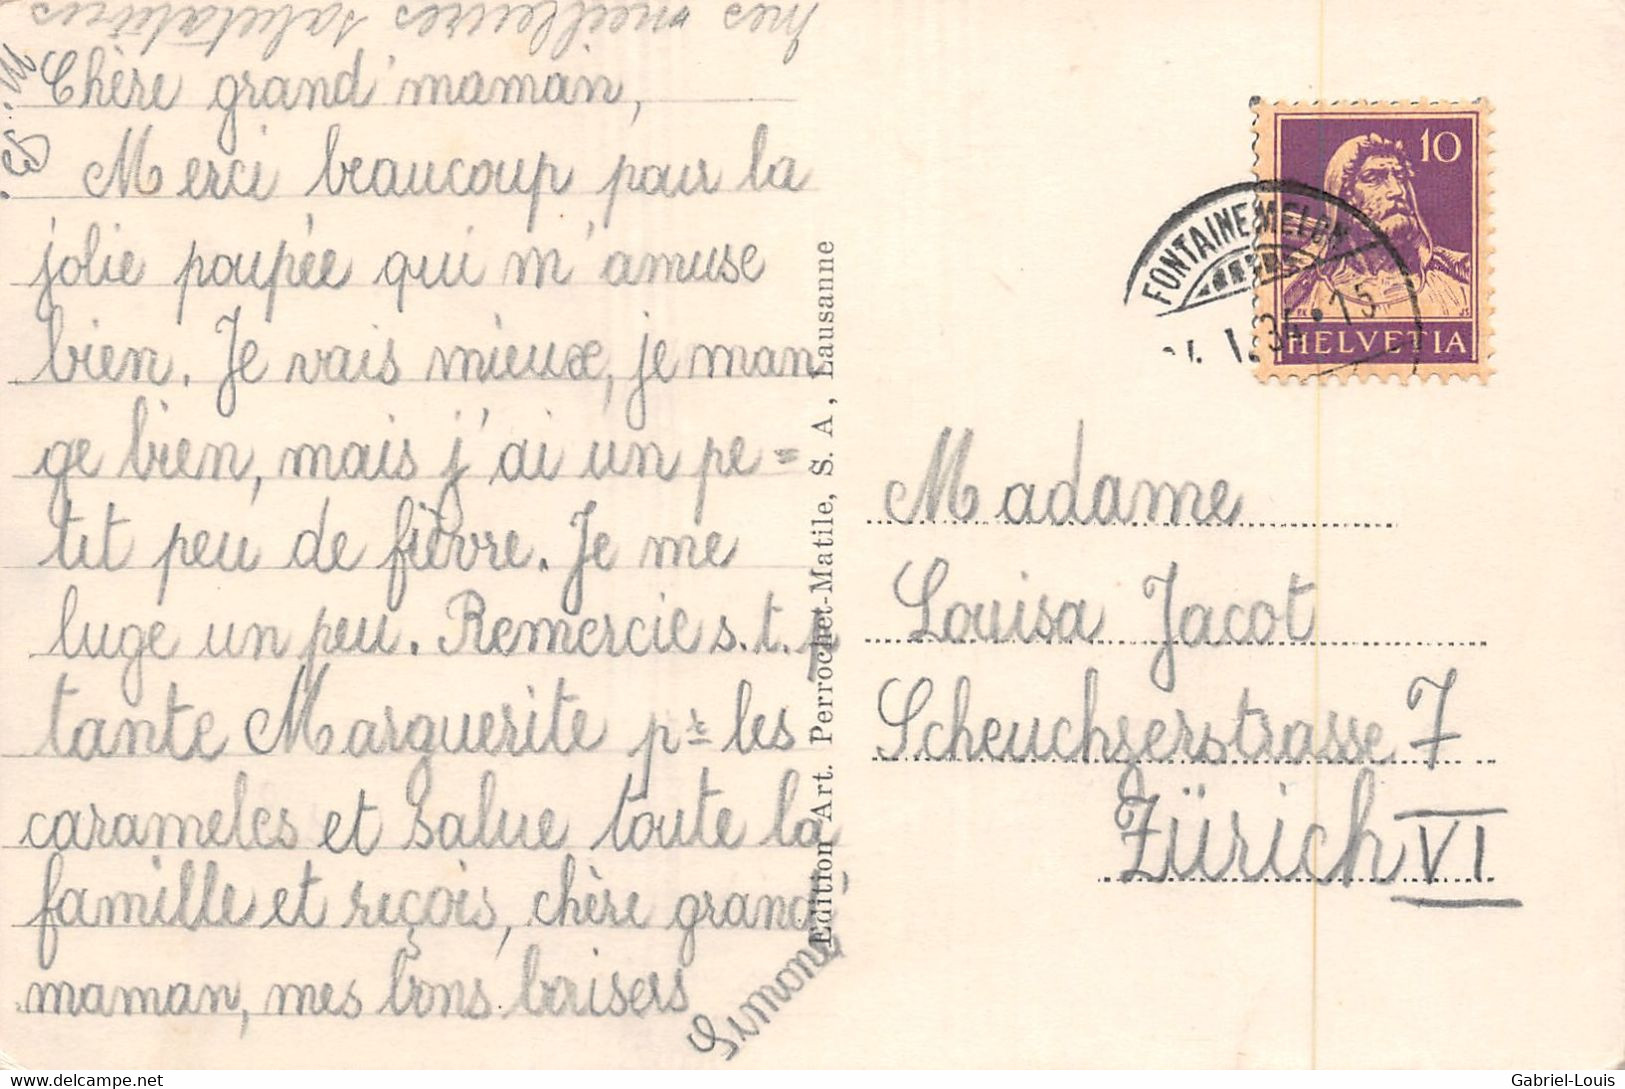 mes meilleures salutations
M. B.
Chère grand'maman,
Merci beaucoup pour la
jolie poupée qui m'amuse
bien. Je vais mieux, je man
ge bien, mais j'ai un pe=
tit peu de fièvre. Je me
luge un peu. Remercie s.t.p
tante Marguerite pr les
carameles et salue toute la
famille et reçois, chère grand'
maman, mes bons baisers
Simone
Edition Art. Perrochet-Matile, S. A, Lausanne
FONTAINEMELON
I. 34 • 15
10
HELVETIA
Madame
Louisa Jacot
Scheuchzerstrasse 7
Zürich VI
www.delcampe.net
Gabriel-Louis